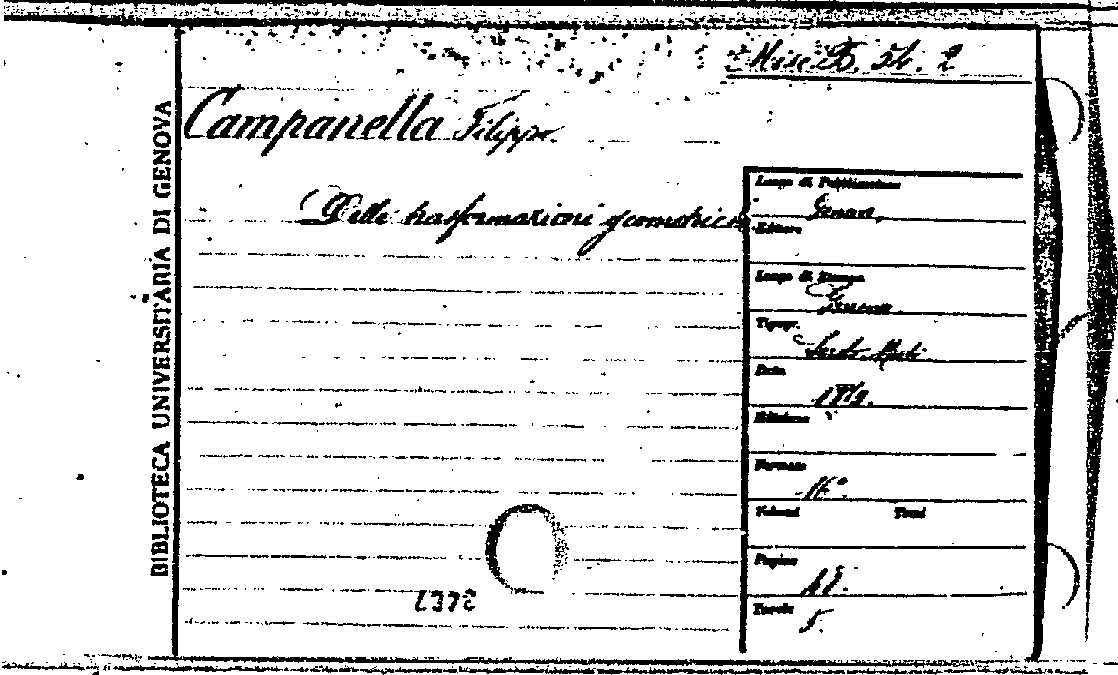 Misc. B. 54. 2
Campanella Filippo.
Delle trasformazioni geometriche
BIBLIOTECA UNIVERSITARIA DI GENOVA
Luogo di Pubblicazione
Genova,
Editore
Luogo di Stampa
Genova.
Tipogr.
Sordo-Muti
Data
Edizione
Formato
16°.
Volumi Tomi
Pagine
Tavole
5.